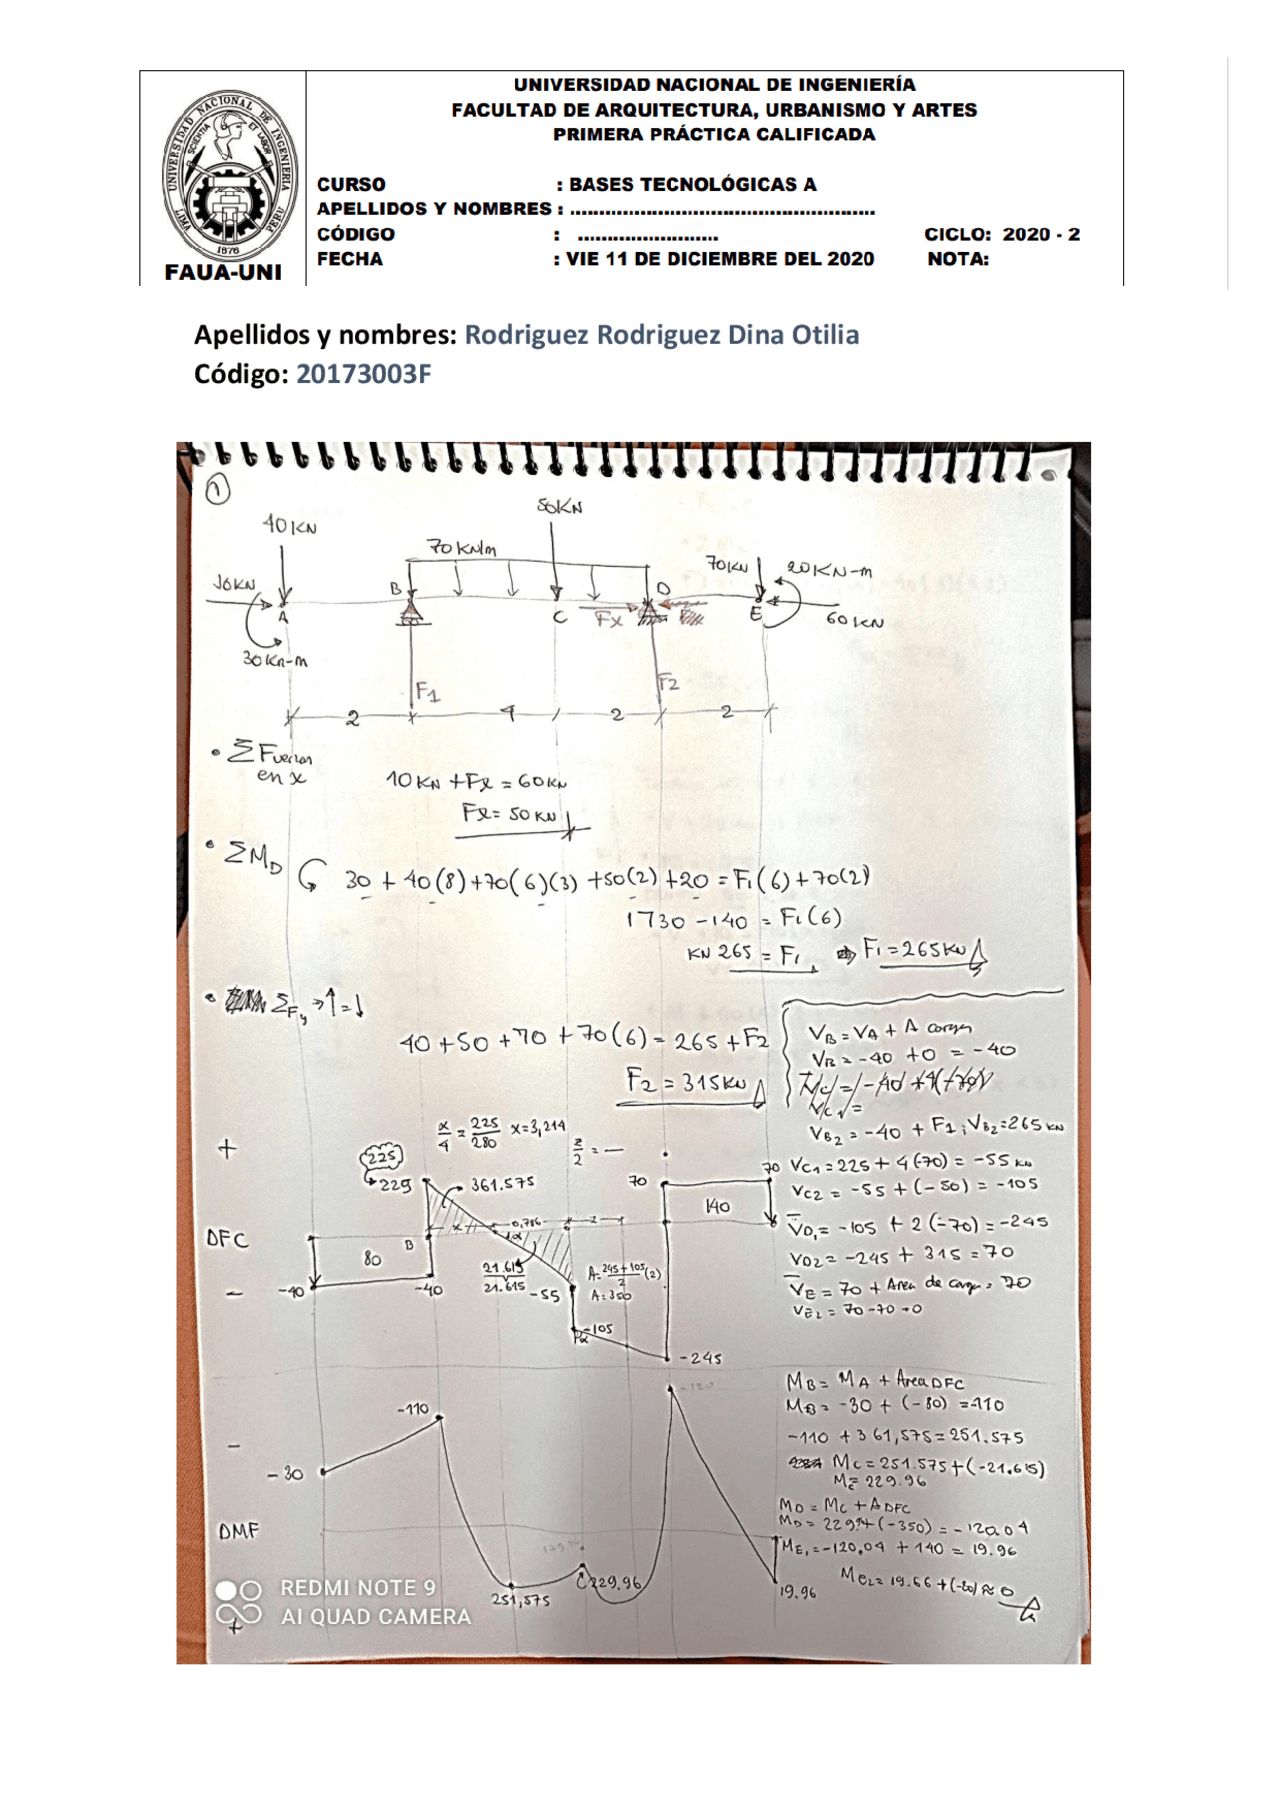 UNIVERSIDAD NACIONAL DE INGENIERÍA
FACULTAD DE ARQUITECTURA, URBANISMO Y ARTES
PRIMERA PRÁCTICA CALIFICADA
UNIVERSIDAD NACIONAL DE INGENIERIA
SCIENTIA ET LABOR
LIMA PERU
1876
FAUA-UNI
CURSO : BASES TECNOLÓGICAS A
APELLIDOS Y NOMBRES : ....................................................
CÓDIGO : ........................ CICLO: 2020 - 2
FECHA : VIE 11 DE DICIEMBRE DEL 2020 NOTA:
Apellidos y nombres: Rodriguez Rodriguez Dina Otilia
Código: 20173003F
1
50KN
40KN
70KN/m
70KN 20KN-m
10KN B D
A C Fx E 60KN
30Kn-m
F1 F2
2 4 2 2
• ΣFuerzas en x
10KN + Fx = 60KN
Fx = 50KN
• ΣMD
30 + 40(8) + 70(6)(3) + 50(2) + 20 = F1(6) + 70(2)
1730 - 140 = F1(6)
KN 265 = F1 ⇒ F1 = 265KN
• ΣFy ⇒ ↑=↓
40 + 50 + 70 + 70(6) = 265 + F2
F2 = 315KN
VB = VA + A carga
VB = -40 + 0 = -40
VB2 = -40 + F1; VB2 = 265 KN
VC1 = 225 + 4(-70) = -55 KN
VC2 = -55 + (-50) = -105
VD1 = -105 + 2(-70) = -245
VD2 = -245 + 315 = 70
VE = 70 + Area de carga = 70
VE2 = 70 - 70 = 0
x/4 = 225/280 x = 3,214
z/2 = —
+
225
229
361.575
70 70
140
DFC
B
80
x 0,786 2
-
-40 -40
21.615
21.615
-55
A = 245+105/2 (2)
A = 350
-105
-245
MB = MA + Area DFC
MB = -30 + (-80) = -110
-110 + 361,575 = 251.575
MC = 251.575 + (-21.615)
MC = 229.96
MD = MC + A DFC
MD = 229.94 + (-350) = -120.04
ME1 = -120,04 + 140 = 19.96
ME2 = 19.66 + (-20) ≈ 0
-120
-110
-
-30
DMF
251,575
C 229.96
19.96
+
REDMI NOTE 9
AI QUAD CAMERA